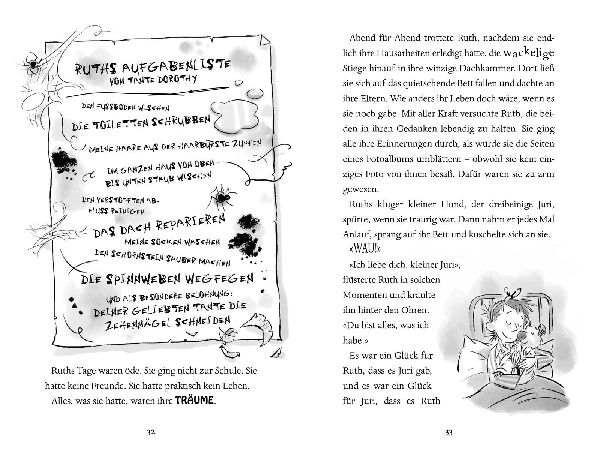 RUTHS AUFGABENLISTE
VON TANTE DOROTHY
DEN FUSSBODEN WISCHEN
DIE TOILETTEN SCHRUBBEN
MEINE HAARE AUS DER HAARBÜRSTE ZUPFEN
IM GANZEN HAUS VON OBEN
BIS UNTEN STAUB WISCHEN
DEN VERSTOPFTEN AB-
FLUSS REINIGEN
DAS DACH REPARIEREN
MEINE SOCKEN WASCHEN
DEN SCHORNSTEIN SAUBER MACHEN
DIE SPINNWEBEN WEGFEGEN
UND ALS BESONDERE BELOHNUNG:
DEINER GELIEBTEN TANTE DIE
ZEHENNÄGEL SCHNEIDEN
Ruths Tage waren öde. Sie ging nicht zur Schule. Sie
hatte keine Freunde. Sie hatte praktisch kein Leben.
Alles, was sie hatte, waren ihre TRÄUME.
32
Abend für Abend trottete Ruth, nachdem sie end-
lich ihre Hausarbeiten erledigt hatte, die wackelige
Stiege hinauf in ihre winzige Dachkammer. Dort ließ
sie sich auf das quietschende Bett fallen und dachte an
ihre Eltern. Wie anders ihr Leben doch wäre, wenn es
sie noch gäbe. Mit aller Kraft versuchte Ruth, die bei-
den in ihren Gedanken lebendig zu halten. Sie ging
alle ihre Erinnerungen durch, als würde sie die Seiten
eines Fotoalbums umblättern – obwohl sie kein ein-
ziges Foto von ihnen besaß. Dafür waren sie zu arm
gewesen.
Ruths kluger kleiner Hund, der dreibeinige Juri,
spürte, wenn sie traurig war. Dann nahm er jedes Mal
Anlauf, sprang auf ihr Bett und kuschelte sich an sie.
»WAU!«
»Ich liebe dich, kleiner Juri«,
flüsterte Ruth in solchen
Momenten und kraulte
ihn hinter den Ohren.
»Du bist alles, was ich
habe.«
Es war ein Glück für
Ruth, dass es Juri gab,
und es war ein Glück
für Juri, dass es Ruth
33